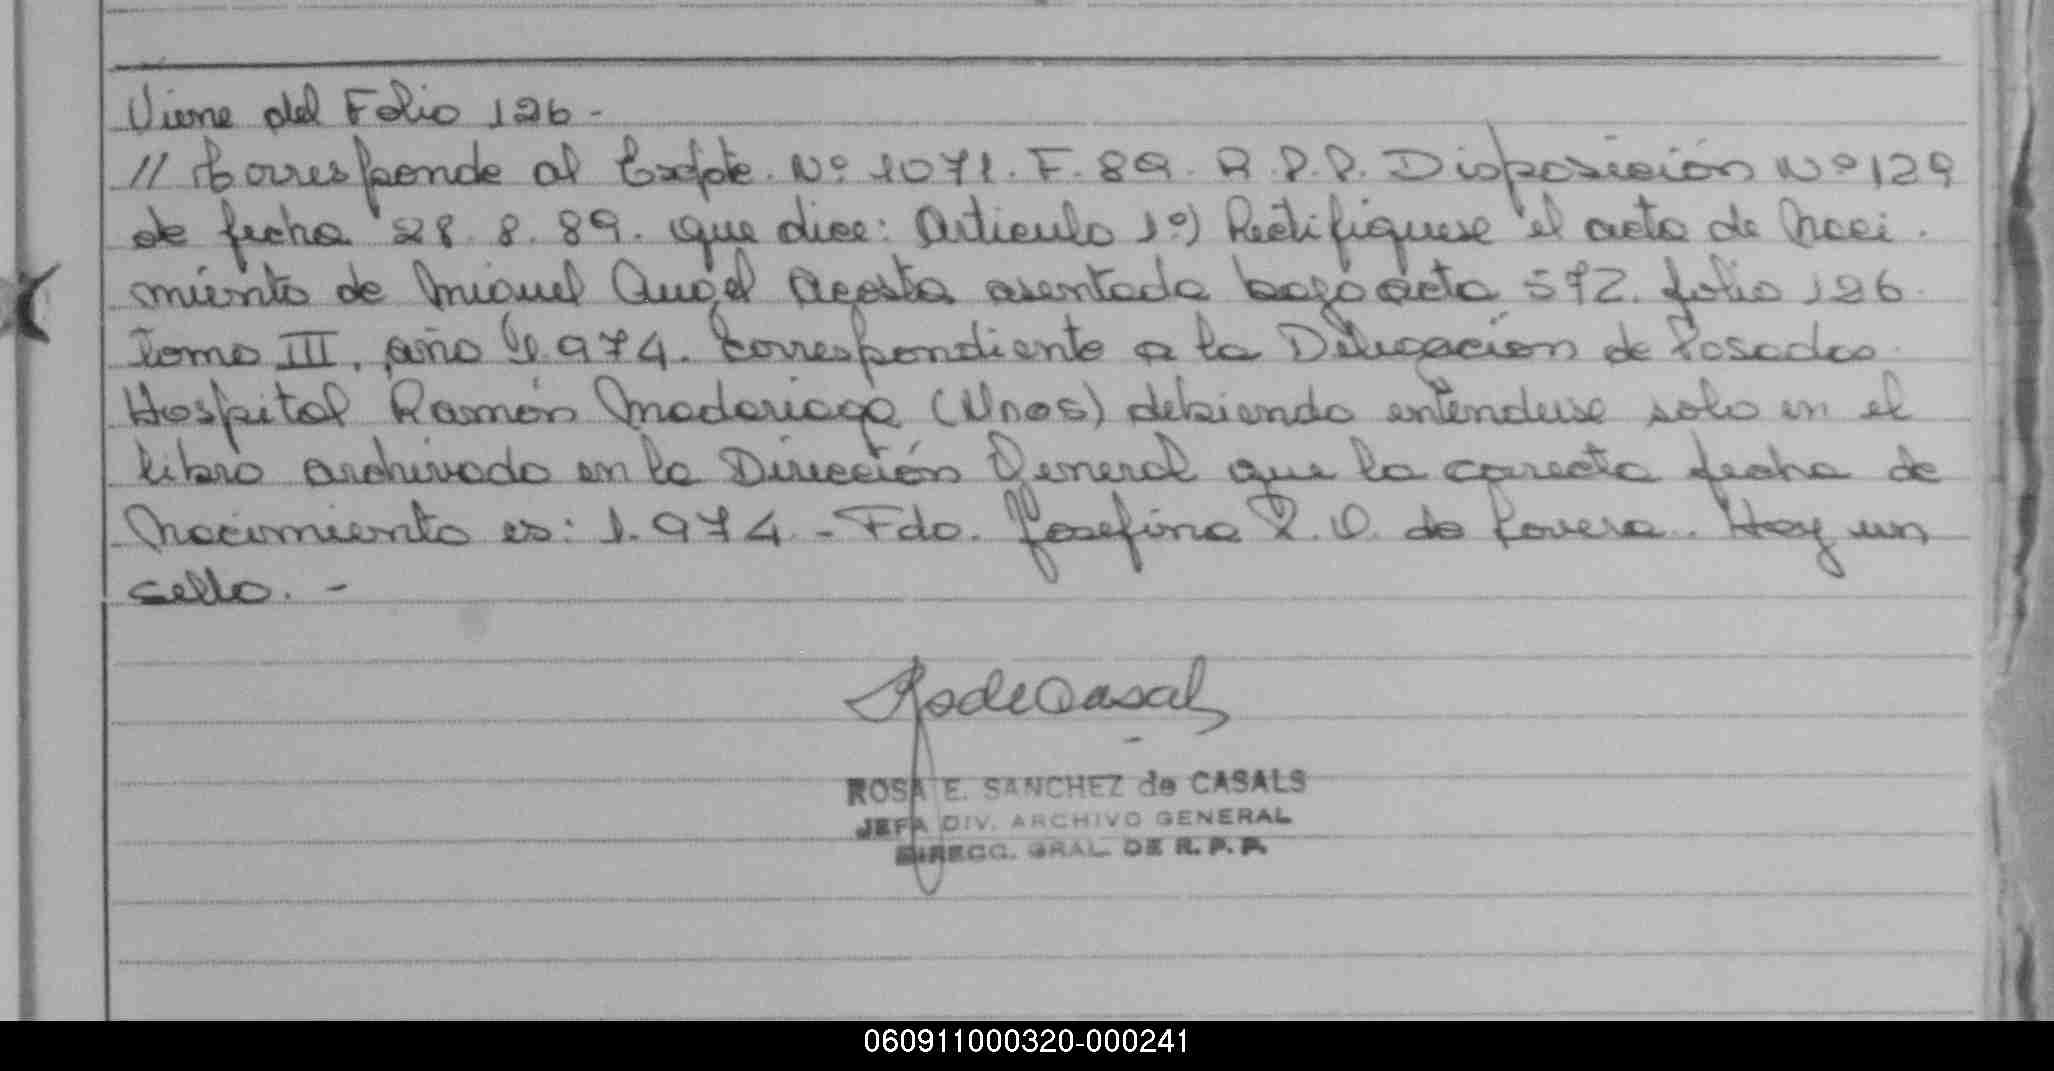 Viene del Folio 126 -
// Corresponde al Expte. Nº 1071. F. 89. R.P.P. Disposición Nº 129
de fecha 28.8.89. que dice: Artículo 1º) Rectifiquese el acta de Naci.
miento de Miguel Angel Acosta asentada bajo acta 572. folio 126.
Tomo III, año 1.974. Correspondiente a la Delegación de Posadas.
Hospital Ramón Madariaga (Mnes) debiendo entenderse solo en el
libro archivado en la Dirección General que la correcta fecha de
Nacimiento es: 1.974. - Fdo. Josefina de Lovera. Hay un
sello. -
ROSA E. SANCHEZ de CASALS
JEFA DIV. ARCHIVO GENERAL
DIRECC. GRAL. DE R. P. P.
060911000320-000241